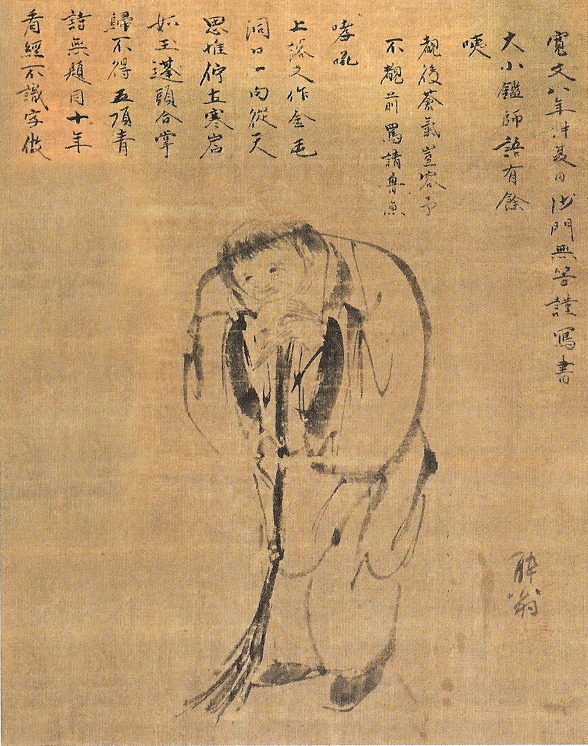 看經不識字做
詩無題目十年
歸不得五頂青
如玉蓬頭合掌
思惟停立寒岩
洞口一向從天
上謠又作金毛
哮吼
不覩前罵請魯魚
覩後蒼氣豈容予
咦
大小鑑師語有餘
寛文八年仲夏日沙門無答謹寫書
酔翁